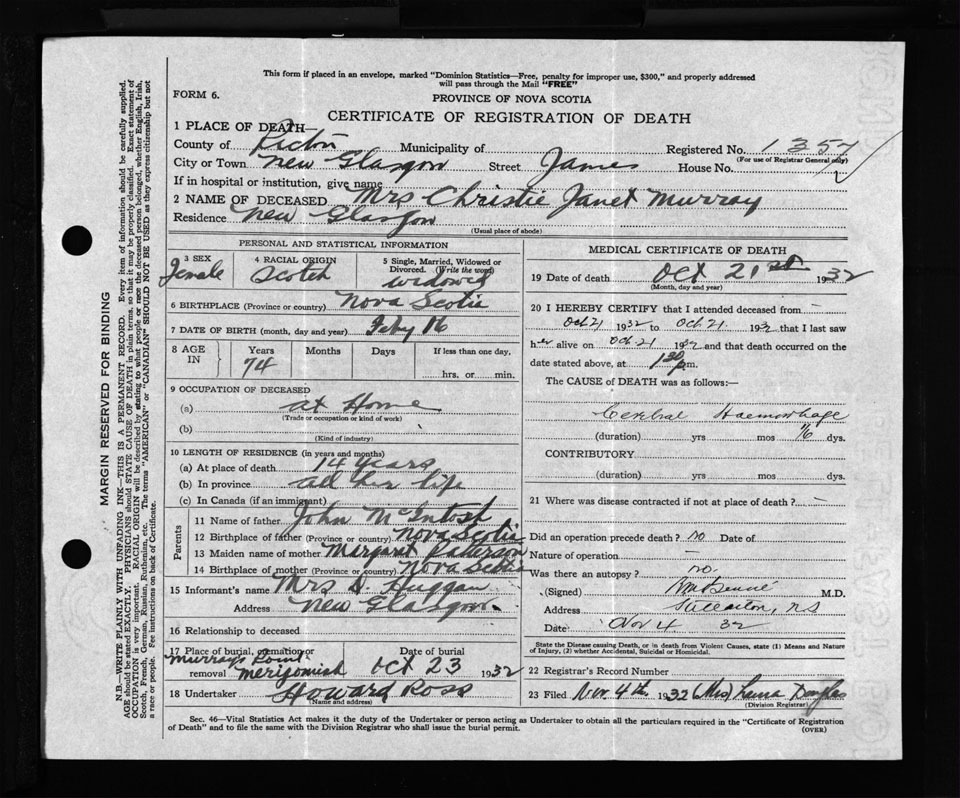 This form if placed in an envelope, marked "Dominion Statistics—Free, penalty for improper use, $300," and properly addressed
will pass through the Mail "FREE"
FORM 6.
PROVINCE OF NOVA SCOTIA
CERTIFICATE OF REGISTRATION OF DEATH
1 PLACE OF DEATH—
County of Pictou Municipality of Registered No. 1357
(For use of Registrar General only)
City or Town New Glasgow Street James House No.
If in hospital or institution, give name
2 NAME OF DECEASED Mrs Christie Janet Murray
Residence New Glasgow
(Usual place of abode)
PERSONAL AND STATISTICAL INFORMATION
3 SEX
Female
4 RACIAL ORIGIN
Scotch
5 Single, Married, Widowed or
Divorced. (Write the word)
widowed
6 BIRTHPLACE (Province or country) Nova Scotia
7 DATE OF BIRTH (month, day and year) Feby 16
8 AGE IN
Years Months Days If less than one day,
74 hrs. or min.
9 OCCUPATION OF DECEASED
(a) at Home
(Trade or occupation or kind of work)
(b)
(Kind of industry)
10 LENGTH OF RESIDENCE (in years and months)
(a) At place of death 14 years
(b) In province all her life
(c) In Canada (if an immigrant)
Parents
11 Name of father John McIntosh
12 Birthplace of father (Province or country) Nova Scotia
13 Maiden name of mother Margaret Paterson
14 Birthplace of mother (Province or country) Nova Scotia
15 Informant's name Mrs D. Huggan
Address New Glasgow.
16 Relationship to deceased
17 Place of burial, cremation or removal Date of burial
Murrays Point
Merigomish Oct 23 1932
18 Undertaker Howard Ross
(Name and address)
MEDICAL CERTIFICATE OF DEATH
19 Date of death Oct 21st 1932
(Month, day and year)
20 I HEREBY CERTIFY that I attended deceased from
Oct 21 1932 to Oct. 21 1932 that I last saw
her alive on Oct. 21 1932 and that death occurred on the
date stated above, at 1 30 p.m.
The CAUSE of DEATH was as follows:—
Cerebral Haemorrhage
(duration) yrs mos dys.
CONTRIBUTORY
(duration) yrs mos dys.
21 Where was disease contracted if not at place of death?
Did an operation precede death? no Date of
Nature of operation —
Was there an autopsy? no.
(Signed) M.D.
Address Stellarton, NS
Date Nov 4 32
State the Disease causing Death, or in death from Violent Causes, state (1) Means and Nature
of Injury, (2) whether Accidental, Suicidal or Homicidal.
22 Registrar's Record Number
23 Filed Nov. 4th 1932 (Mrs) Douglas
(Division Registrar)
Sec. 46—Vital Statistics Act makes it the duty of the Undertaker or person acting as Undertaker to obtain all the particulars required in the "Certificate of Registration
of Death" and to file the same with the Division Registrar who shall issue the burial permit.
(OVER)
MARGIN RESERVED FOR BINDING
N.B.—WRITE PLAINLY WITH UNFADING INK—THIS IS A PERMANENT RECORD. Every item of information should be carefully supplied.
AGE should be stated EXACTLY. PHYSICIANS should STATE CAUSE OF DEATH in plain terms, so that it may be properly classified. Exact statement of
OCCUPATION is very important. RACIAL ORIGIN will be described by stating to what people or race the deceased person belonged, whether English, Irish,
Scotch, French, German, Russian, Ruthenian, etc. The terms "AMERICAN" or "CANADIAN" SHOULD NOT BE USED as they express citizenship but not
a race or people. See instructions on back of Certificate.